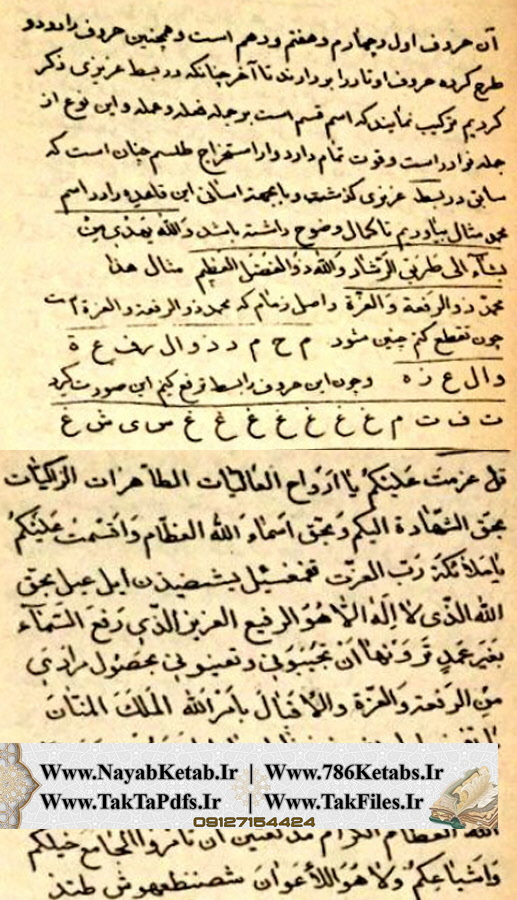 آن حروف اول و چهارم و هفتم و دهم است و همچنین حروف را دو دو
طرح کرده حروف اوتار را بردارند تا آخر چنانکه در بسط عزیزی ذکر
کردیم ترکیب نمایند که اسم قسم است بر جمله و این نوع از
جمله نوادر است و قوت تمام دارد و از استخراج طلسم چنان است که
سابق در بسط عزیزی کذشت و بجهة اسانی این قاعده را در اسم
محمد مثال بیاوریم تا کمال وضوح داشته باشد والله یهدی من
یشآء الی طریق الرشاد والله ذو الفضل العظیم مثال هذا
محمد ذو الرفعة والعزّة و اصل زمام که محمد ذو الرفعة والعزة است
چون تقطیع کنیم چنین میشود م ح م د ذ و ا ل ر ف ع ة
و ا ل ع ز ه و چون این حروف را بسط ترفع کنیم این صورت گیرد
ت ف ت م غ غ غ غ غ غ غ غ س ی ش غ
قل عزمت علیکم یا ارواح العالیات الطاهرات الزاکیات
بحق الشهادة الیکم و بحق اسماء الله العظام و اقسمت علیکم
یا ملائکة رب العزت
الله الذی لا اله الا هو الرفیع العزیز الذی رفع السمآء
بغیر عمد ترونها ان تجیبونی و تعینونی بحصول مرادی
من الرفعة والعزة والاقبال بامر الله الملک المنان
www.NayabKetab.Ir | Www.786Ketabs.Ir
Www.TakTaPdfs.Ir | Www.TakFiles.Ir
09127154424
الله العظام الکرام
و اشیاعکم ولا هو الاعوان